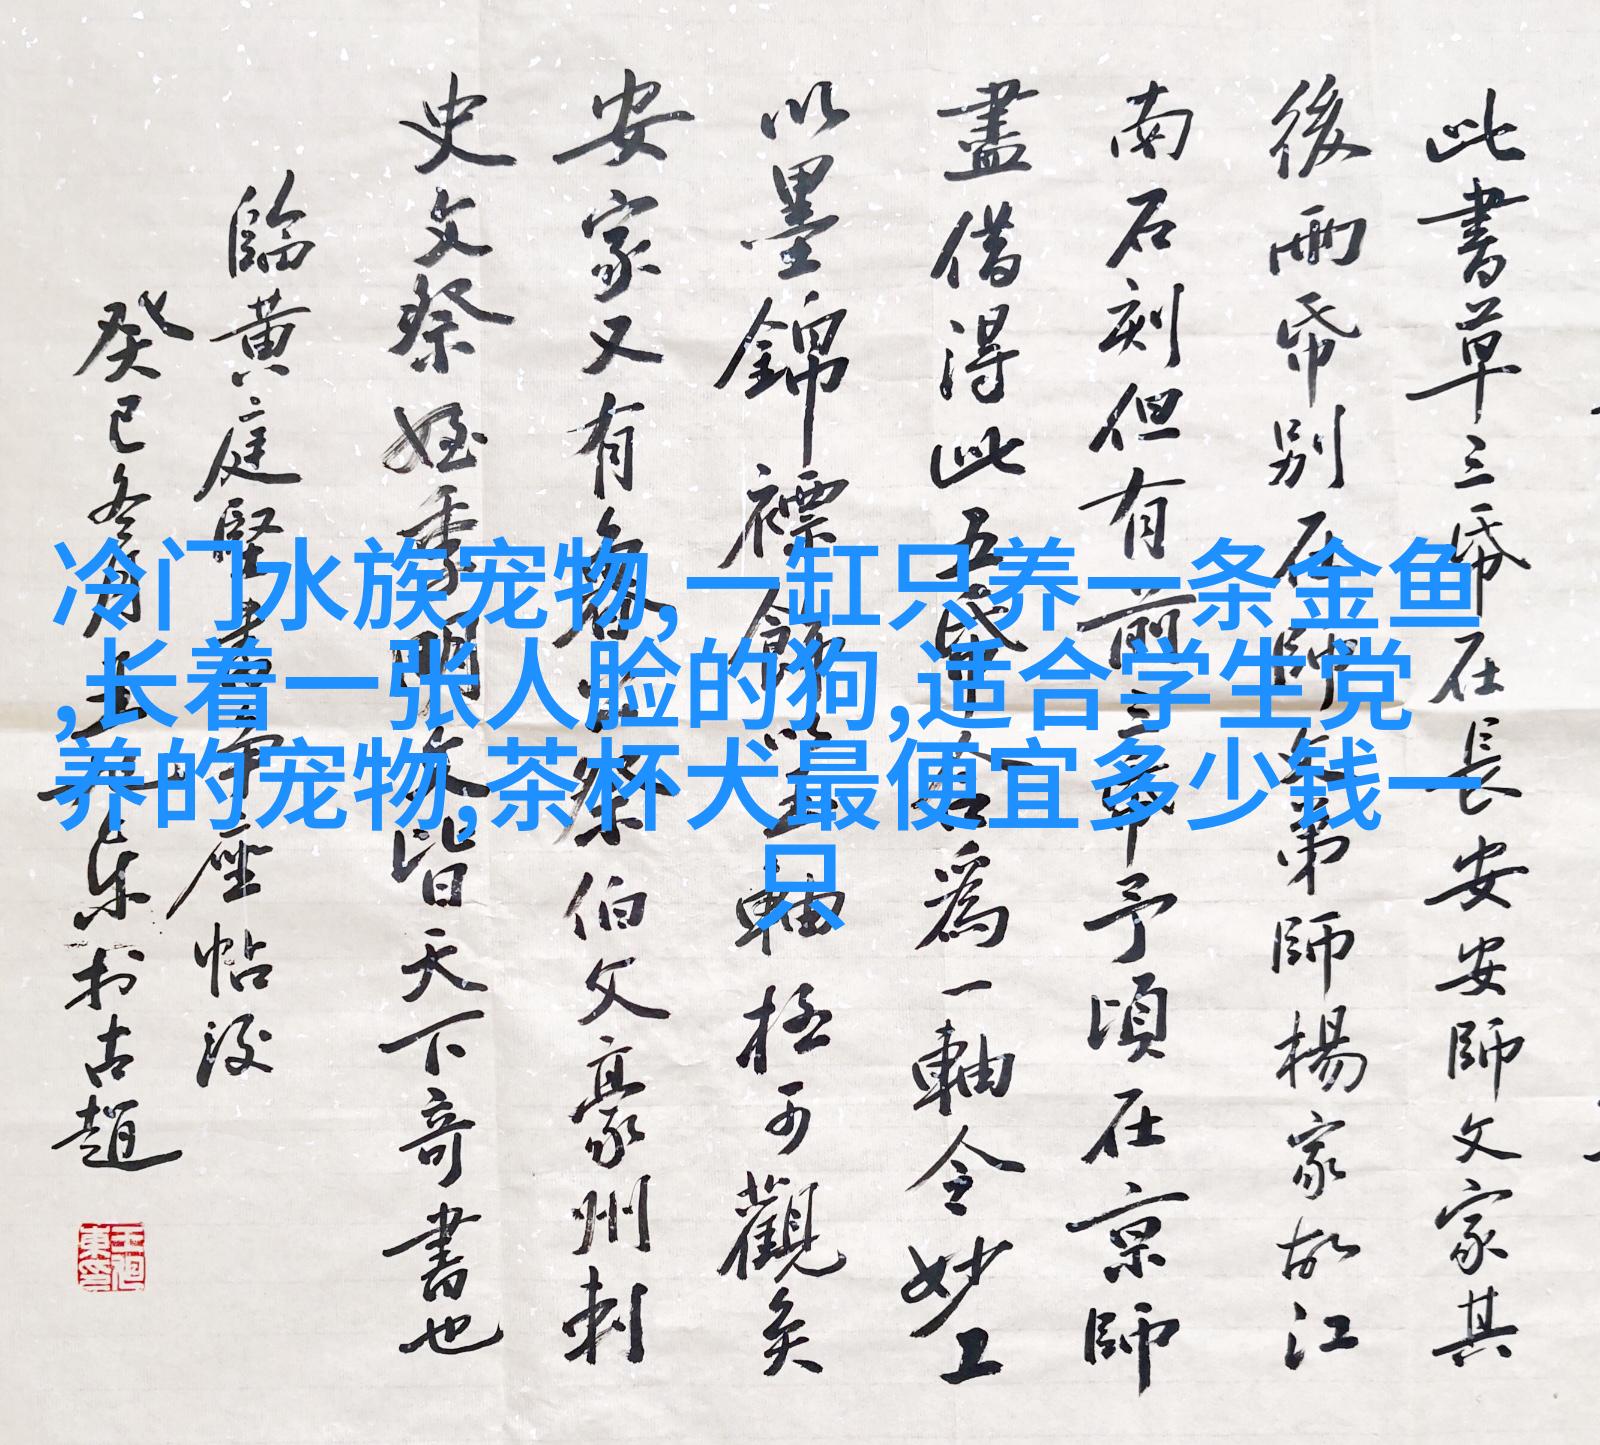 此書草三帋在長安安師文家其
後兩帋別在師
師楊家故江
南石刻但有前
予頃在京師
盡借得此五帋
為一軸令妙工
以墨錦褾飾以
軸極可觀矣
安家又有
伯父豪州刺
史文祭姪季明文皆天下奇書也
臨黄庭堅書争座帖跋
癸巳冬月王
东於古趙
冷门水族宠物,一缸只养一条金鱼
,长着一张人脸的狗,适合学生党
养的宠物,茶杯犬最便宜多少钱一
只